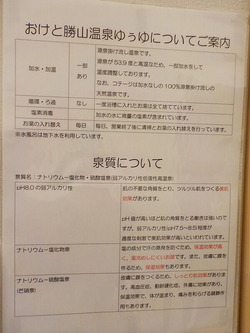 おけと勝山温泉ゆぅゆについてご案内
加水・加温
一部
あり
源泉掛け流し温泉です。
源泉が53.9度と高温なため、一部加水をして
温度調整しております。
なお、コテージは加水なしの100%源泉掛け流しで
す。
循環・ろ過 なし 一度浴槽に入れたお湯は全て捨てています。
塩素消毒 加水の水に微量の塩素が含まれています。
お湯の入れ替え 毎日 毎日、営業終了後に清掃とお湯の入れ替えを行っています。
※水風呂は地下水を利用しています。
泉質について
泉質名：ナトリウム－塩化物・硫酸塩泉(弱アルカリ性低張性高温泉)
pH8.0の弱アルカリ性
肌の不要な角質をとり、ツルツル肌をつくる美肌
効果があります。
pH値が高いほど肌の角質をとる働きは強いので
すが、弱アルカリ性(pH7.5～8.5)程度が
適度な刺激で美肌効果が高いといわれています。
ナトリウム－塩化物泉
塩の成分で汗の蒸発を防ぐため、保温効果が高
く、湯冷めしにくいお湯です。また、皮膚に塩の膜を
作るため、保湿効果もあります。
ナトリウム－硫酸塩泉
(芒硝泉)
皮膚に膜をつくるため、しっとり肌効果がありま
す。高血圧症、動脈硬化症、外傷に効果があり、
保温効果で、体が温まり、痛みを和らげる鎮静作
用もあります。